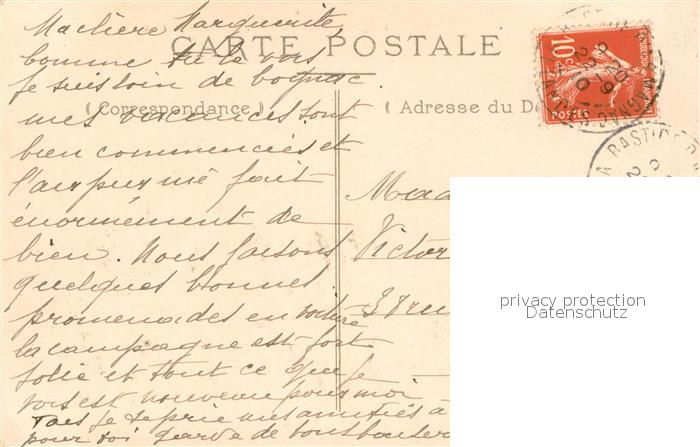 Ma chère Marguerite
CARTE POSTALE
comme tu le vois
je suis loin de
(Correspondance)
(Adresse du D
mes vacances sont
bien commencées et
l'air pur me fait
énormément de
bien. Nous faisons
quelques bonnes
promenades en voiture
la campagne est fort
jolie et tout ce que je
vois est nouveau pour moi
je te prie mes amitiés à
pour toi garde de bons baisers
Mad
Victor
3 rue
10c
POSTES
LA BASTIDE
privacy protection
Datenschutz